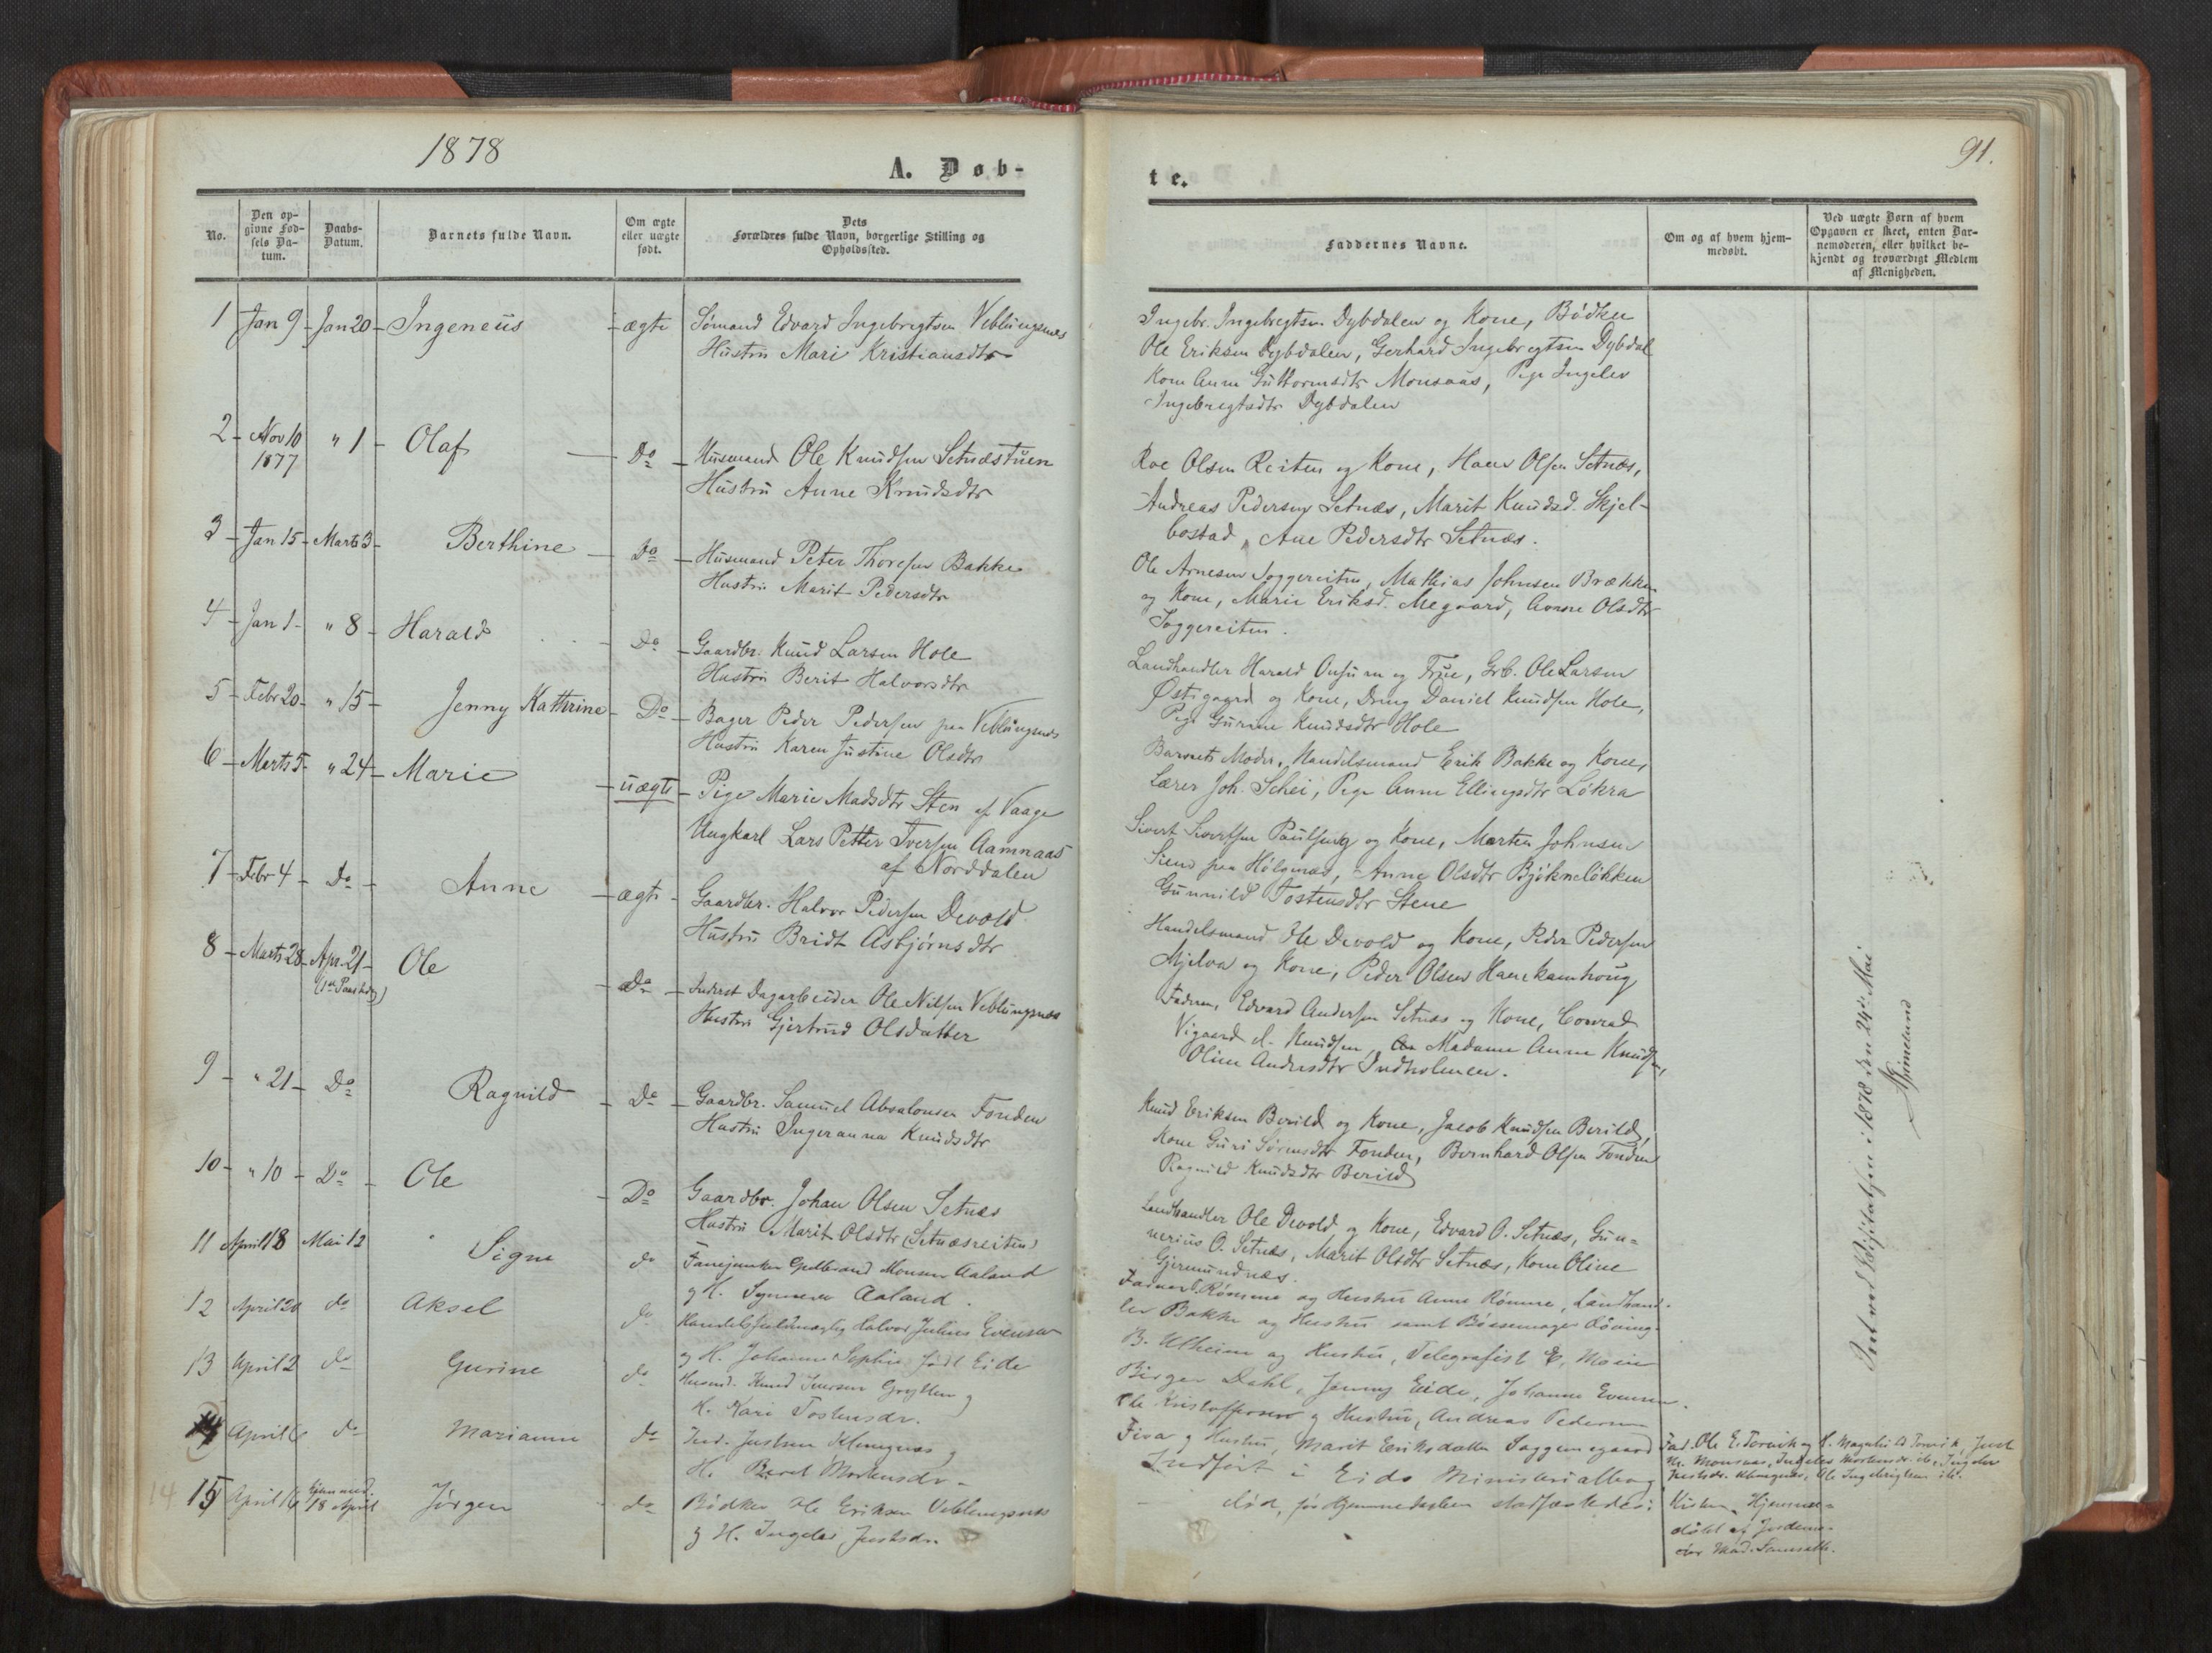 1878
A. Døb-
No.
Den op-
givne Fød-
sels Da-
tum.
Daabs-
Datum.
Barnets fulde Navn.
Om ægte
eller uægte
født.
Dets
Forældres fulde Navn, borgerlige Stilling og
Opholdssted.
1 Jan 9 Jan 20 Ingeneus ægte Sømand Edvard Ingebrigtsen Veblungsnes
Hustru Mari Kristiansdtr
2 Nov 10 " 1 Olaf Do Husmand Ole Knudsen Setnæstuen
1877 Hustru Anne Knudsdtr
3 Jan 15 Marts 3 Berthine Do Husmand Peter Thoresen Bakke
Hustru Marit Pedersdtr
4 Jan 1 " 8 Harald Do Gaardbr. Knud Larsen Hole
Hustru Berit Halvorsdtr
5 Febr 20 " 15 Jenny Kathrine Do Bager Peder Pedersen paa Veblungsnes
Hustru Karen Justine Olsdtr
6 Marts 5 " 24 Marie uægte Pige Marie Madsdtr Sten af Vaage
Ungkarl Lars Petter Iversen Aamnaas
af Norddalen
7 Febr 4 Do Anne ægte Gaardbr. Halvor Pedersen Devold
Hustru Bridt Asbjørnsdtr
8 Marts 28 Apr. 21 Ole Do Inderst Dagarbeider Ole Nilsen Veblungsnes
(1ste Paaskdg) Hustru Gjertrud Olsdatter
9 " 21 Do Ragnild Do Gaardbr. Samuel Absalonsen Fonden
Hustru Ingeranna Knudsdtr
10 " 10 Do Ole Do Gaardbr. Johan Olsen Setnæs
Hustru Marit Olsdtr (Setnæsreiten)
11 April 18 Mai 12 Signe do Fanejunker Gulbrand Monsen Aaland
g H. Synneva Aaland.
12 April 20 do Aksel do Handelsfuldmægtig Halvor Julius Evensen
g H. Johanne Sophie født Eide
13 April 2 do Gurine do Husmd. Knud Iversen Grytten g
H. Kari Tostensdr.
14 April 6 do Marianne do Ind. Justsen Klungnes g
H. Beret Mortensdr
14 15 April 16 hjemmed. 18 April Jørgen do Bødker Ole Eriksen Veblungsnes
g H. Ingelev Justsdr.
91.
te.
Faddernes Navne.
Om og af hvem hjem-
medøbt.
Ved uægte Børn af hvem
Opgaven er skeet, enten Bar-
nemoderen, eller hvilket be-
kjendt og troværdigt Medlem
af Menigheden.
Ingebr. Ingebregtsen Dybdalen og Kone, Bødker
Ole Eriksen Dybdalen, Gerhard Ingebregtsen Dybdal
Kone Anne Guttormsdtr Monsaas, Pige Ingelev
Ingebregtsdtr Dybdalen
Roe Olsen Reiten og Kone, Hans Olsen Setnæs,
Andreas Pedersen Setnæs, Marit Knudsd. Skjel-
bostad, Ane Pedersdtr Setnæs.
Ole Arnesen Soggereiten, Mathias Johnsen Brækken
og Kone, Marie Eriksd. Megaard, Anne Olsdtr
Soggereiten.
Landhandler Harald Onsum og Frue, Grb. Ole Larsen
Østigaard og Kone, Dreng Daniel Knudsen Hole,
Pige Gurine Knudsdtr Hole
Barnets Moder, Handelsmand Erik Bakke og Kone,
Lærer Joh. Schei, Pige Anne Ellingsdtr Løkra
Sivert Sivertsen Paulseng og Kone, Morten Johnsen
Siem paa Holgenæs, Anne Olsdtr Bjøkneløkken
Gunnild Tostensdtr Stene
Handelsmand Ole Devold og Kone, Peder Pedersen
Mjelva og Kone, Peder Olsen Hanekamhoug
Faderen, Edvard Andersen Setnæs og Kone, Conrad
Vigaard d. Knudsen, Madame Anne Knudsen,
Oline Andersdtr Indholmen.
Knud Eriksen Berild og Kone, Jacob Knudsen Berild,
Kone Guri Sørensdtr Fonden, Bernhard Olsen Fonden
Ragnild Knudsdtr Berild
Landhandler Ole Devold og Kone, Edvard O. Setnæs, Gun-
nerius O. Setnæs, Marit Olsdtr Setnæs, Kone Oline
Gjermundnæs.
Rømme og Hustru Anne Rømme, Landhand-
ler Bakke og Hustru samt Bøssemager
B. Ulheim og Hustru, Telegrafist E. Moine
Birger Dahl, Jenny Eide, Johanne Evensen.
Ole Kristoffersen g Hustru, Andreas Pedersen
Fiva g Hustru, Marit Eriksdatter Soggemogaard
Indført i Eids Ministerialbog
død, før Hjemmedaaben stadfæstedes.
Fad. Ole E. Torvik og H. Magnhild Torvik, Just
N. Monsaas, Ingelev Mortensdr. ib., Ingelev
Justsdr. Klungnes, Ole Ingebrigtsen ib.
Kirken. Hjemme-
døbt af Jordemo-
der Mad.
Seet ved Visitatsen i 1878 den 24de Mai